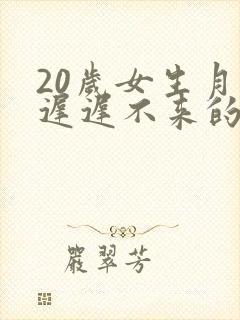 20歲女生月
遲遲不來的
嚴翠芳